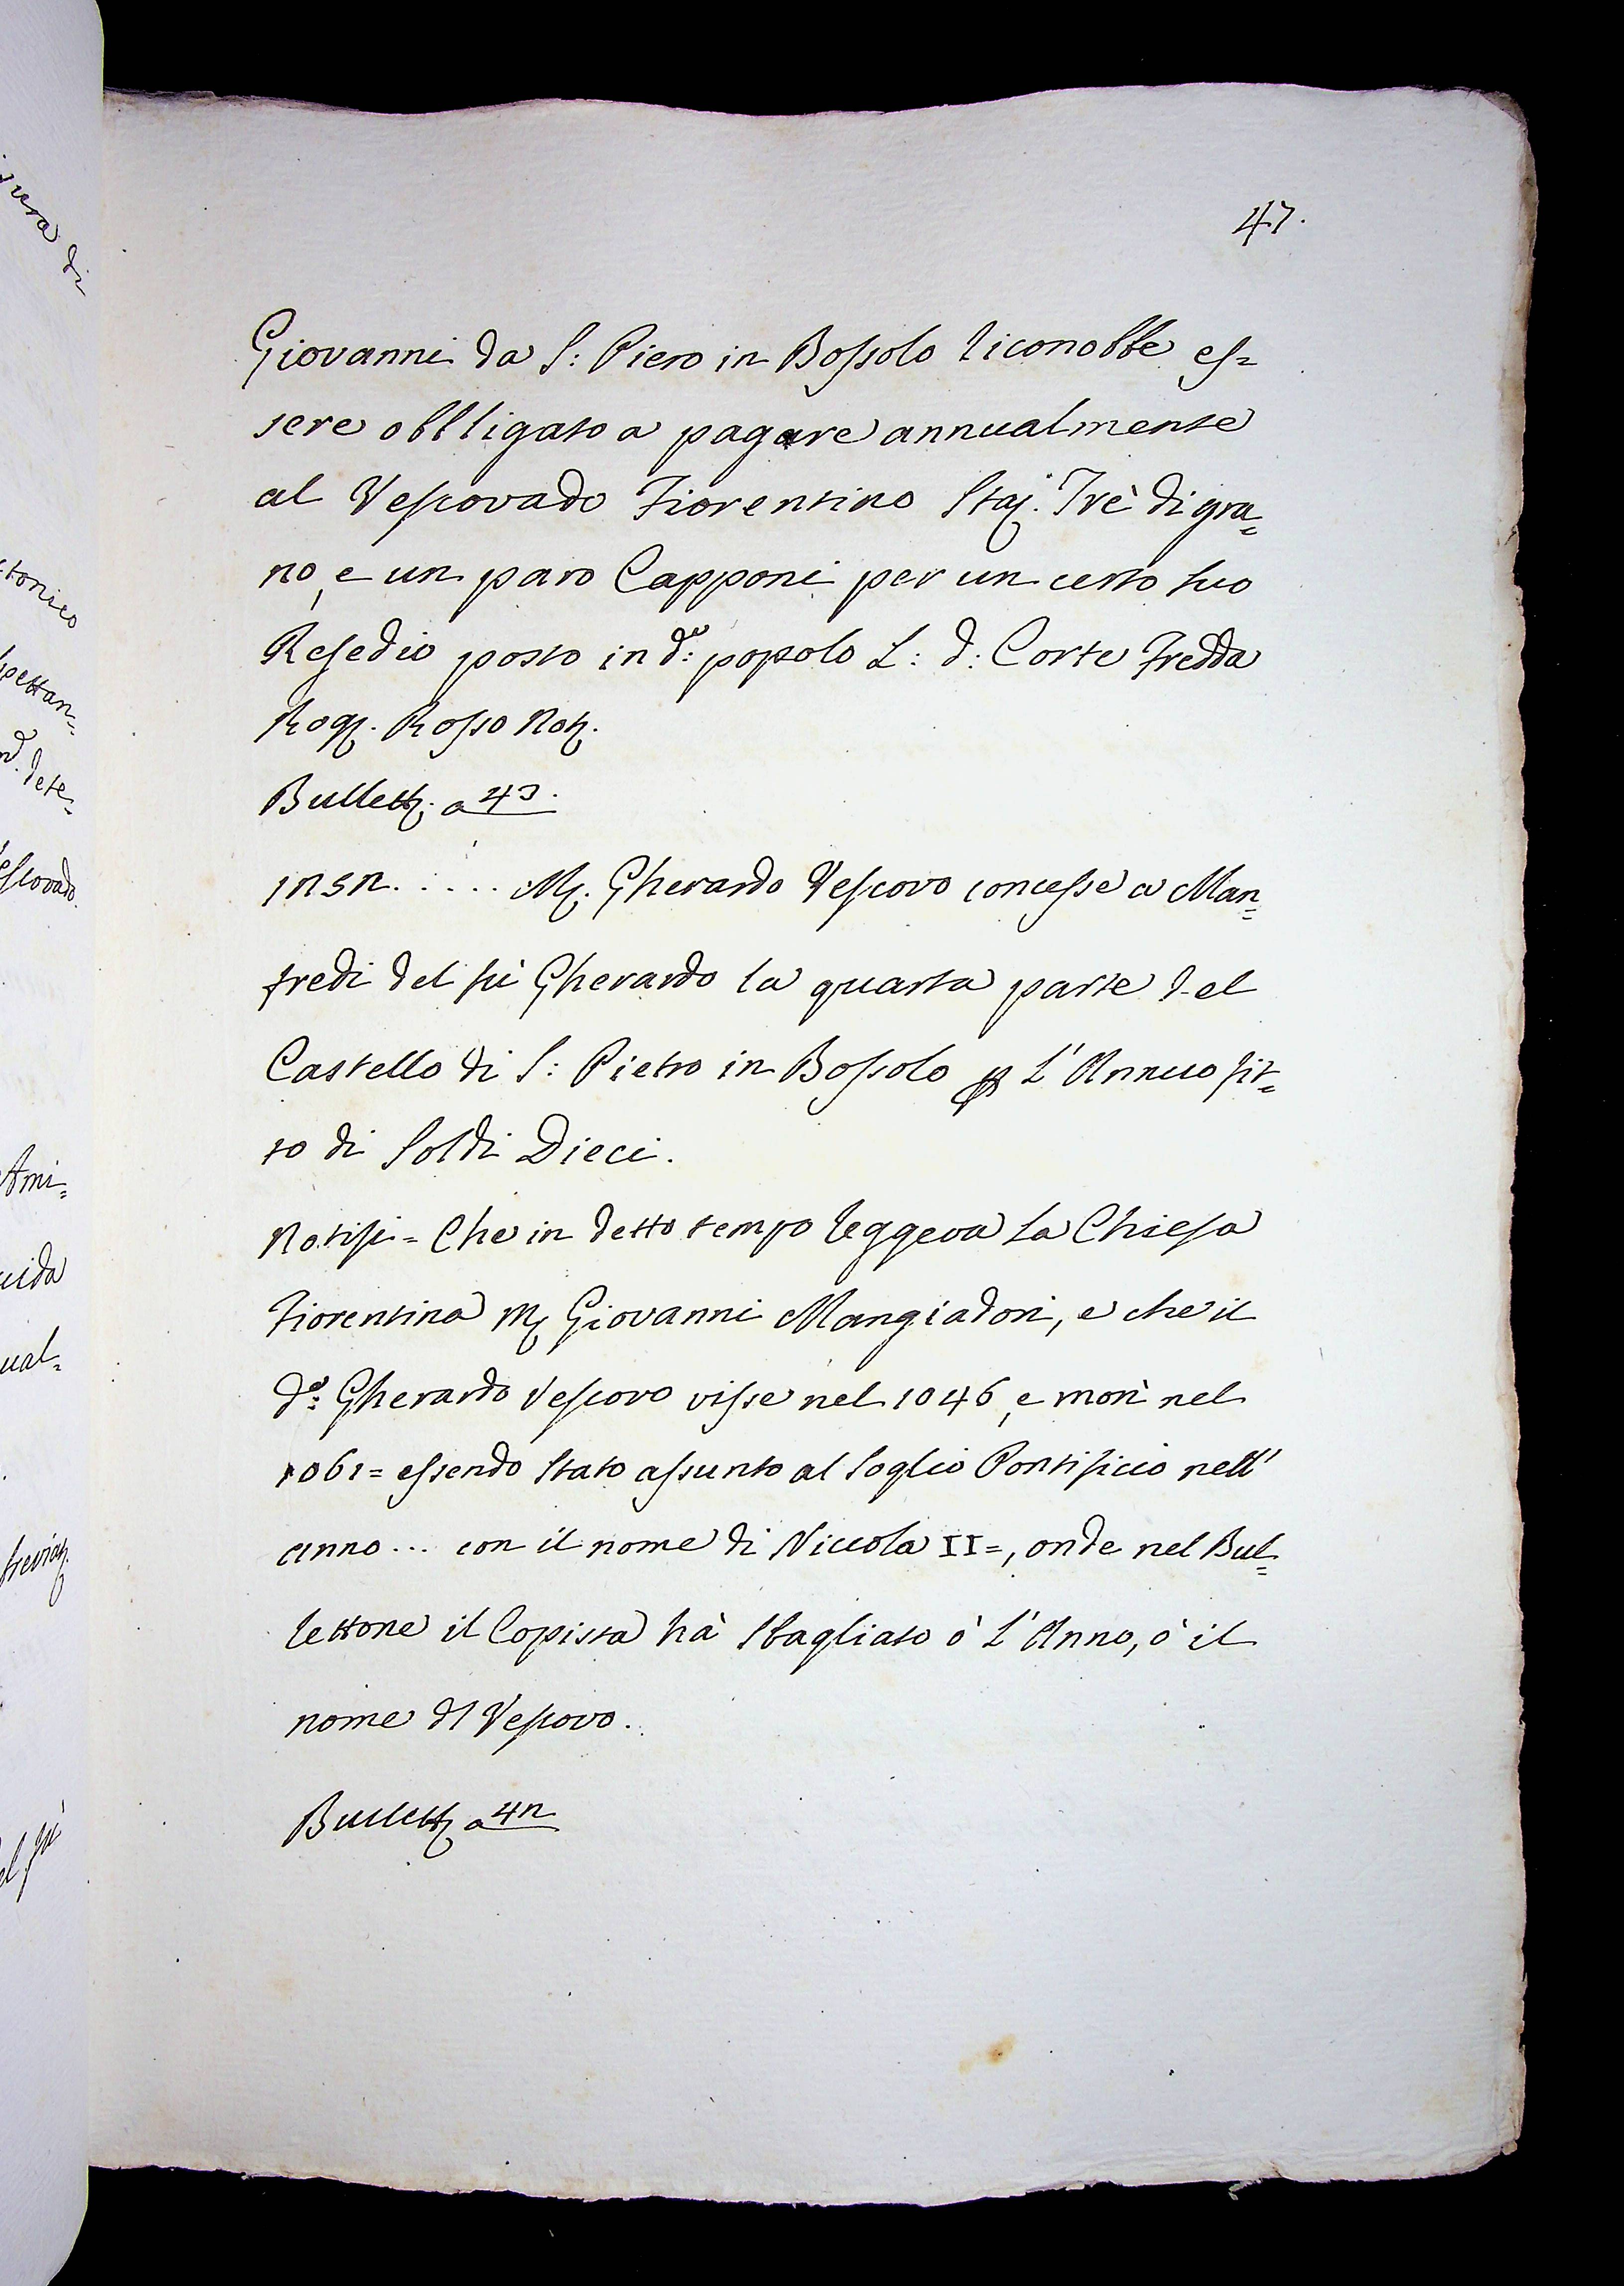 47.
Giovanni da S: Piero in Bossolo riconobbe es=
sere obbligato a pagare annualmente
al Vescovado Fiorentino Staj. Trè di gra=
no, e un paro Capponi per un certo suo
Resedio posto in d.º popolo L: d: Corte fredda
Rog. Rosso Not.
Bullett. a 43.
1252. . . . . M. Gherardo Vescovo concesse a Man=
fredi del fù Gherardo la quarta parte del
Castello di S: Pietro in Bossolo p L'Annuo fit=
to di Soldi Dieci.
Notisi = Che in detto tempo reggeva la Chiesa
Fiorentina M. Giovanni Mangiadori, e che il
d.º Gherardo Vescovo visse nel 1046, e morì nel
1061 = essendo stato assunto al Soglio Pontificio nell'
anno ... con il nome di Niccola II =, onde nel Bul=
lettone il Copista hà sbagliato ò L'Anno, ò il
nome dl Vescovo.
Bullett. a 42